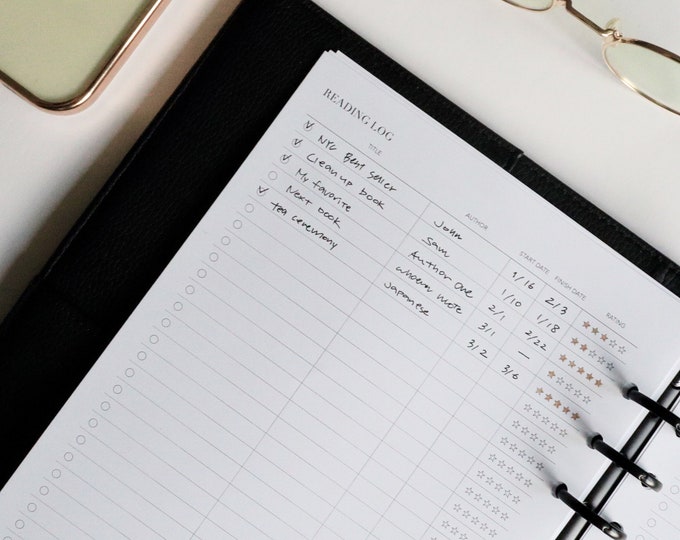 READING LOG
TITLE AUTHOR START DATE FINISH DATE RATING
NYC Best Seller John 1/16 2/3
Clean up book Sam 1/10 1/18
My favorite Author One 2/1 2/22
Next book whoever wrote 3/1 —
tea ceremony Japanese 3/2 3/6